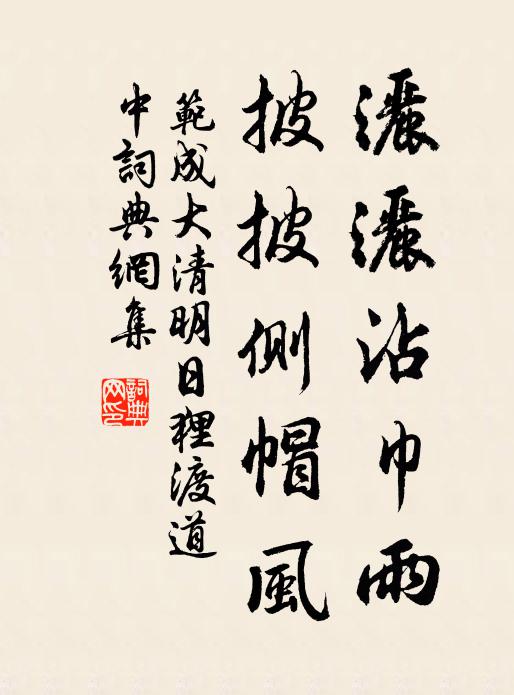 灑灑沾巾雨
披披側帽風
範成大清明日狸渡道
中詞典網集
詞典網印